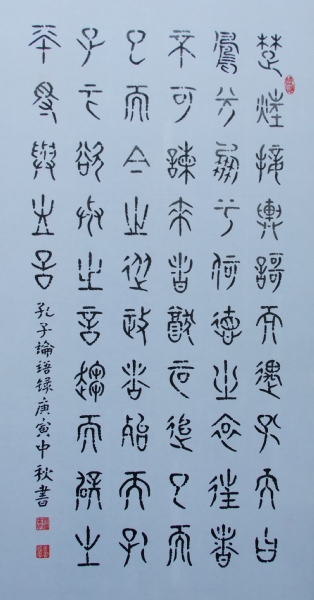 楚狂接輿謌而過孔子曰
鳳兮鳳兮何德之衰往者
不可諫來者猶可追已而
已而今之從政者殆而孔
子下欲與之言趨而辟之
不得與之言 孔子論語錄庚寅中秋書